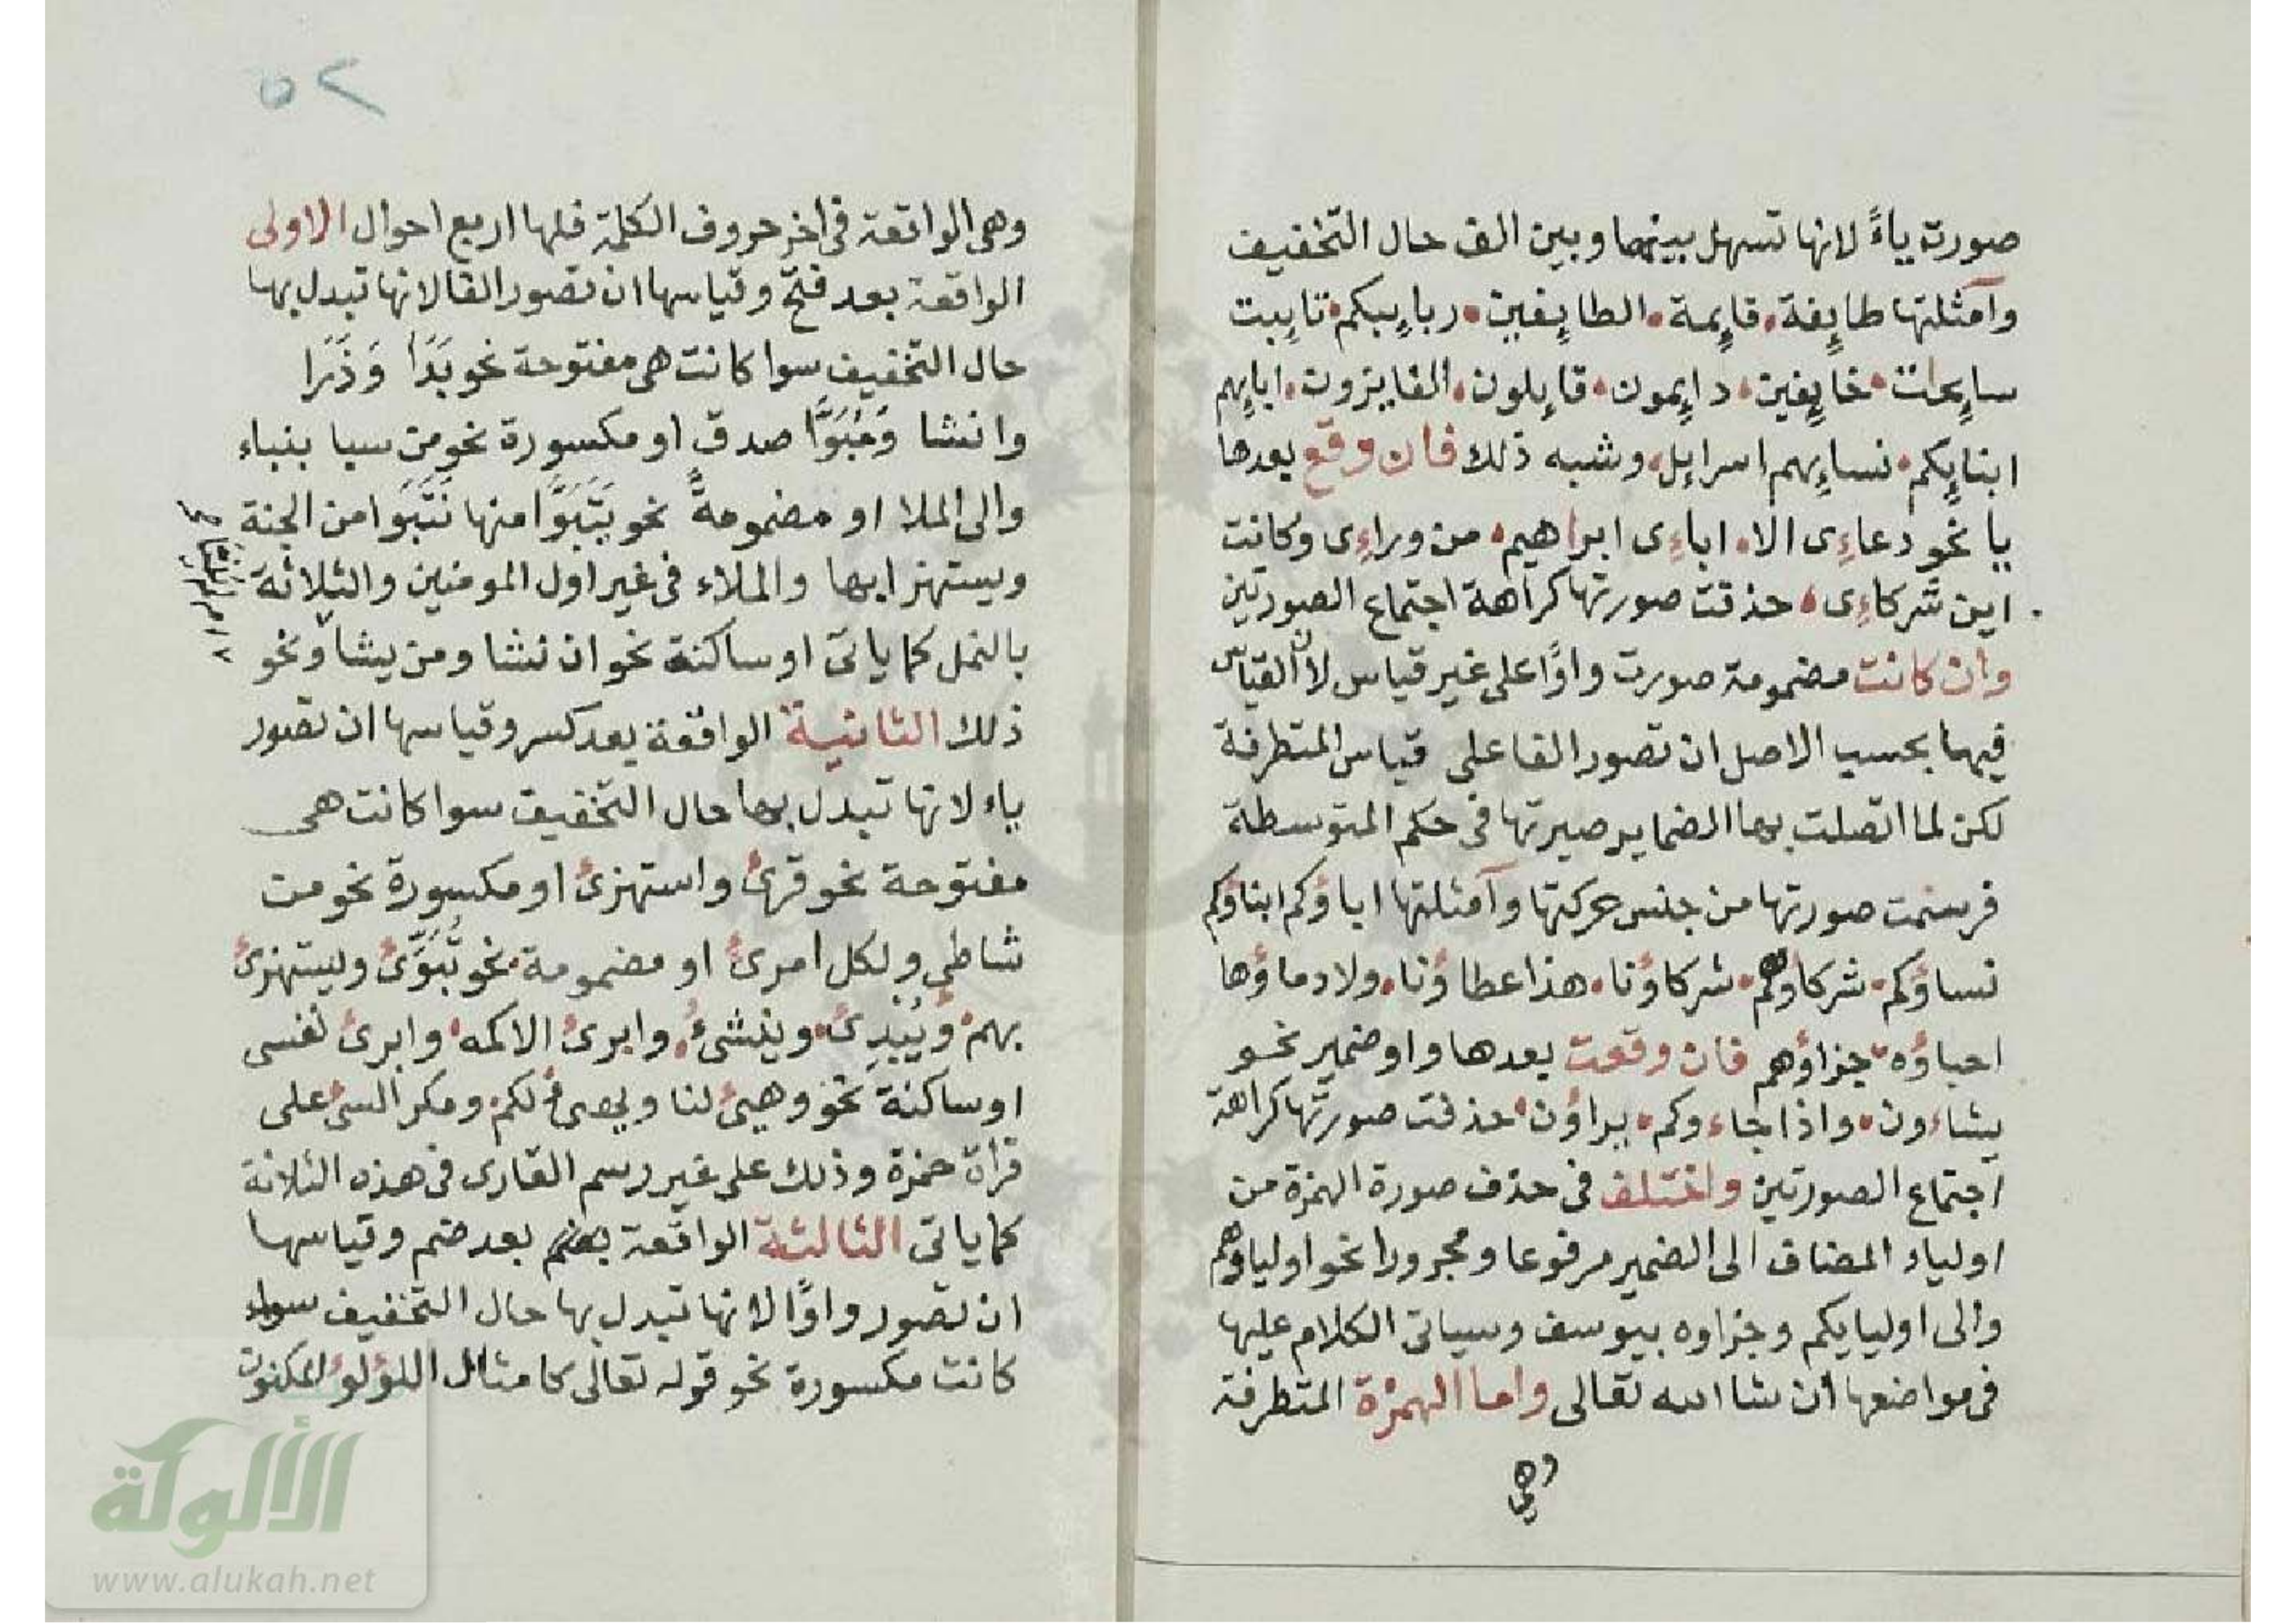 صورت ياءً لانها تسهل بينها وبين الف حال التخفيف
وامثلتها طايٕفة قايٕمة الطايٕفين ربايٕبكم تايٕبت
سايٕحات خايٕفين دايٕمون قايٕلون الفايزون ابايٕهم
ابنايٕكم نسايٕهم اسرايٕل وشبه ذلك فان وقع بعدها
يا نحو دعاءِى الا اباءِى ابراهيم من وراءِى وكانت
اين شركاءِى حذفت صورتها كراهة اجتماع الصورتين
وان كانت مضمومة صورت واوًا على غير قياس لان القياس
فيهما بحسب الاصل ان تصور الفا على قياس المتطرفة
لكن لما اتصلت بها الضماير صيرتها فى حكم المتوسطة
فرسمت صورتها من جنس حركتها وامثلتها اباؤكم ابناؤكم
نساؤكم شركاؤهم شركاؤنا هذا عطاؤنا ولا دماؤها
احباؤه جزاؤهم فان وقعت بعدها واو ضمير نحو
يشاءون واذا جاءوكم يراؤن حذفت صورتها كراهة
اجتماع الصورتين واختلف فى حذف صورة الهمزة من
اولياء المضاف الى الضمير مرفوعا ومجرورا نحو اولياوهم
والى اوليايكم وجزاوه بيوسف وسياتى الكلام عليها
فى مواضعها ان شا الله تعالى واما الهمزة المتطرفة
وهى
٥٢
وهى الواقعة فى اخر حروف الكلمة فلها اربع احوال الاولى
الواقعة بعد فتح وقياسها ان تصور الفا لانها تبدل بها
حال التخفيف سوا كانت هى مفتوحة نحو بَدَا وَذَرَا
وانشا وَمُبَوَّا صدق او مكسورة نحو من سبا بنباء
والى الملا او مضمومةً نحو يَتَبَوَّا منها نَتَبَوَا من الجنة
ويستهزا بها والملاء فى غير اول المومنين والثلاثة
بالنمل كما ياتى او ساكنة نحو ان نشا ومن يشا ونحو
ذلك الثانية الواقعة بعد كسر وقياسها ان تصور
ياء لانها تبدل بها حال التخفيف سوا كانت هى
مفتوحة نحو قرئ واستهزئ او مكسورة نحو من
شاطئ ولكل امرئ او مضمومة نحو تُبَوِّئ ويستهزئ
بهم ويُبدِئ وينشئُ وابرئ الاكمه وابرئ نفسى
او ساكنة نحو وهيئ لنا ويهيئ لكم ومكر السيئ على
قراة حمزة وذلك على غير رسم القارى فى هذه الثلاثة
كما ياتى الثالثة الواقعة بعد ضم وقياسها
ان تصور واوًا لانها تبدل بها حال التخفيف سواء
كانت مكسورة نحو قوله تعالى كامثال اللؤلؤ المكنون
الألوكة
www.alukah.net